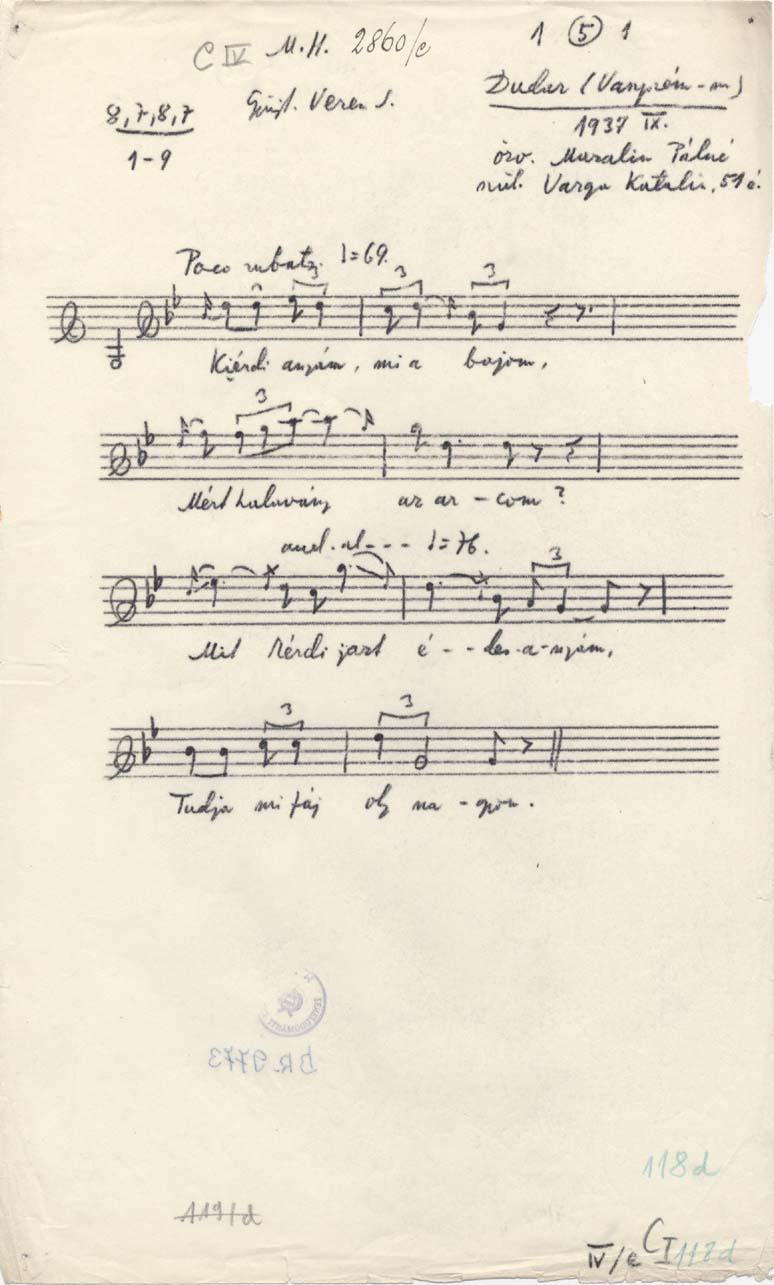 C IV M.H. 2860/e
1 ⑤ 1
8,7,8,7
1-9
Gyűjt. Veress S.
Dudar (Veszprém-m)
1937 IX.
özv. Muzalin Pálné
szül. Varga Katalin, 51 é.
Poco rubato. ♩=69.
3 3 3
Kiérdi anyám, mi a bajom,
3
Mért halavány az ar-com?
and. al--- ♩=76.
3
Mit kérdi jazt é--des-a-nyám,
3 3
Tudja mi fáj oly na-gyon.
BR 9773
118d
119/d
IV/e C I 118d